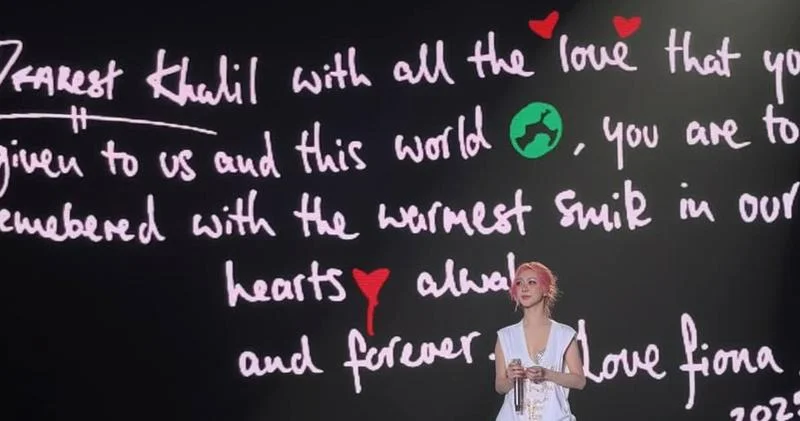 Dearest Khalil with all the love that yo
given to us and this world , you are to
emebered with the warmest smile in our
hearts alwa
and forever. Love fiona
2025